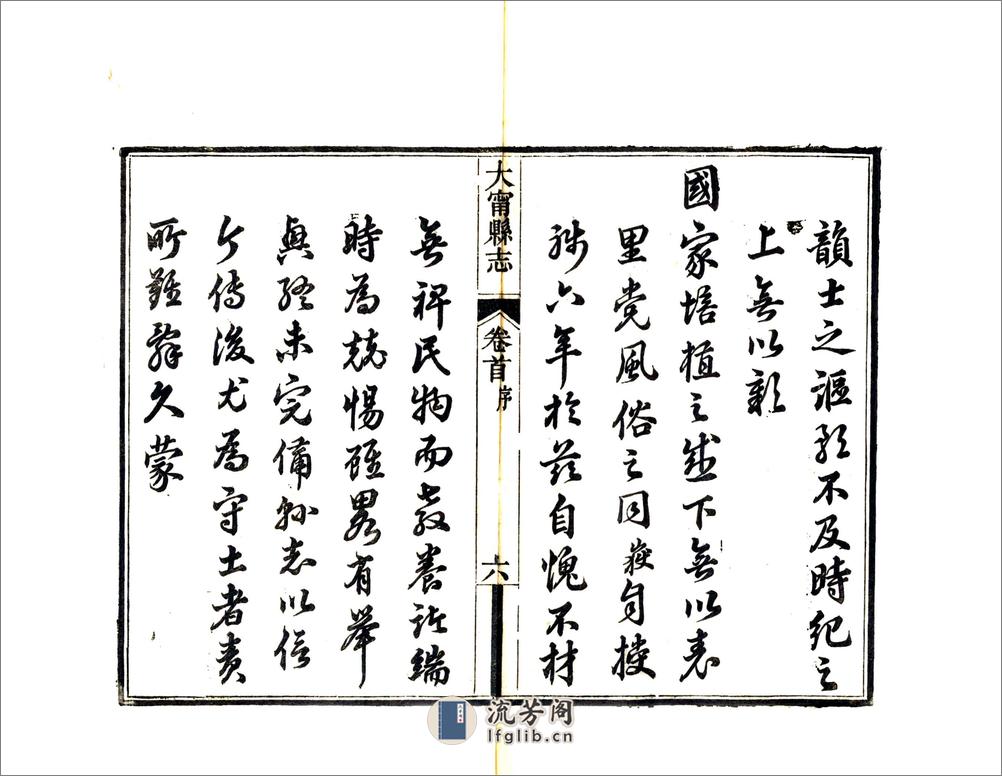 韻士之謳歌不及時紀之
上無以彰
國家培植之盛下無以表
里党風俗之同自
六年於茲自愧不材
大甯縣志 卷首 序 六
無裨民物而教養諸端
時為兢惕雖畧有舉
終未完備縣志以信
今傳後尤為守土者責
所難辭久蒙
流芳阁
lfglib.cn